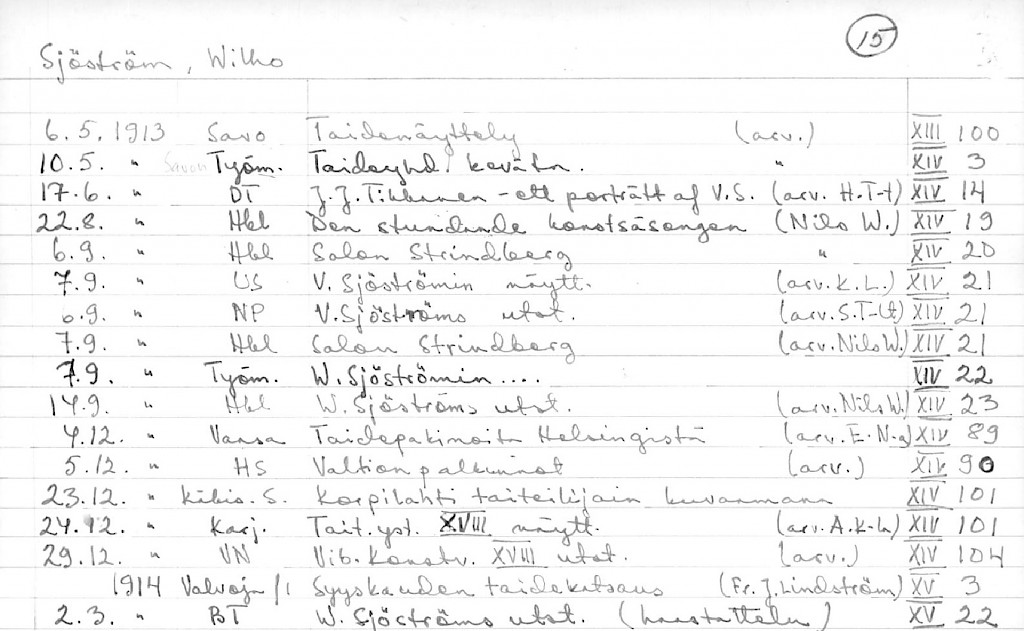 15
Sjöström, Wilho
6.5.1913 Savo Taidenäyttely (arv.) XIII 100
10.5. " Työm. Taideyhd. kevätn. " XIV 3
17.6. " DT J.J. Tikkanen - ett porträtt af V.S. (arv. H.T-t) XIV 14
22.8. " Hbl Den stundande konstsäsongen (Nils W.) XIV 19
6.9. " Hbl Salon Strindberg " XIV 20
7.9. " US V. Sjöströmin näytt. (arv. K.L.) XIV 21
6.9. " NP V. Sjöströms utst. (arv. S.T-lt) XIV 21
7.9. " Hbl Salon Strindberg (arv. Nils W.) XIV 21
7.9. " Työm. W. Sjöströmin .... XIV 22
14.9. " Hbl W. Sjöströms utst. (arv. Nils W.) XIV 23
4.12. " Vaasa Taidepakinoita Helsingistä (arv. E.N-a) XIV 89
5.12. " HS Valtion palkinnot (arv.) XIV 90
23.12. " Kikis. S. Korpilahti taiteilijain kuvaamana XIV 101
24.12. " Karj. Tait.yst. XVIII näytt. (arv. A.K-la) XIV 101
29.12. " VN Vib. Konstv. XVIII utst. (arv.) XIV 104
1914 Valvoja /1 Syyskauden taidekatsaus (Fr. J. Lindström) XV 3
2.3. " BT W. Sjöströms utst. (haastattelu) XV 22